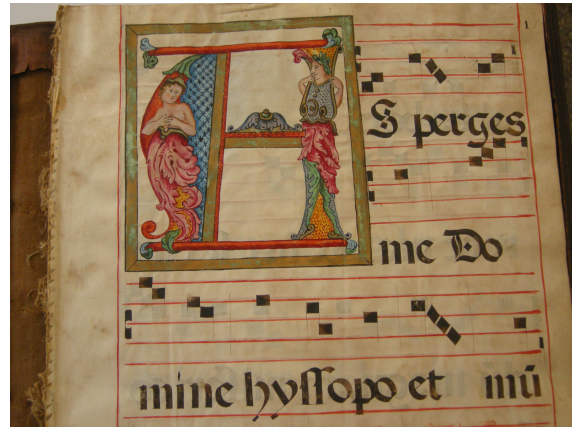 A
S perges
me Do
mine hyssopo et mū